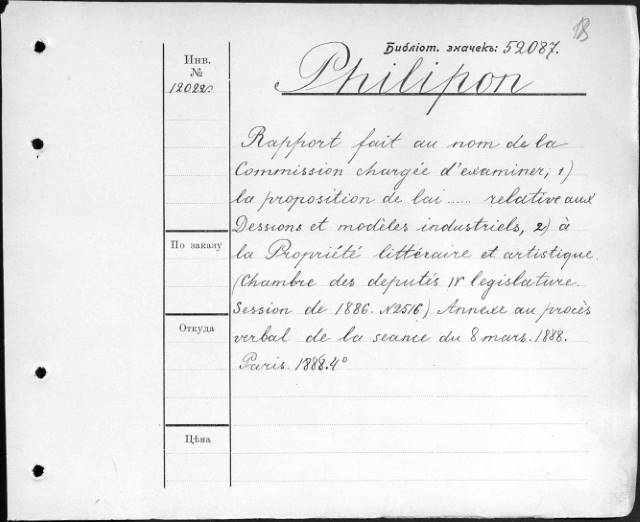 18
Библіот. значекъ: 52087.
Philipon
Инв.
№
12022.
Rapport fait au nom de la
Commission chargée d'examiner, 1)
la proposition de lai ...... relative aux
Dessions et modèles industriels, 2) à
la Propriété littéraire et artistique.
(Chambre des deputés IV legislature.
Session de 1886. N2516) Annexe au procès
verbal de la seance du 8 mars. 1888.
Paris. 1888. 4°
По заказу
Откуда
Цѣна